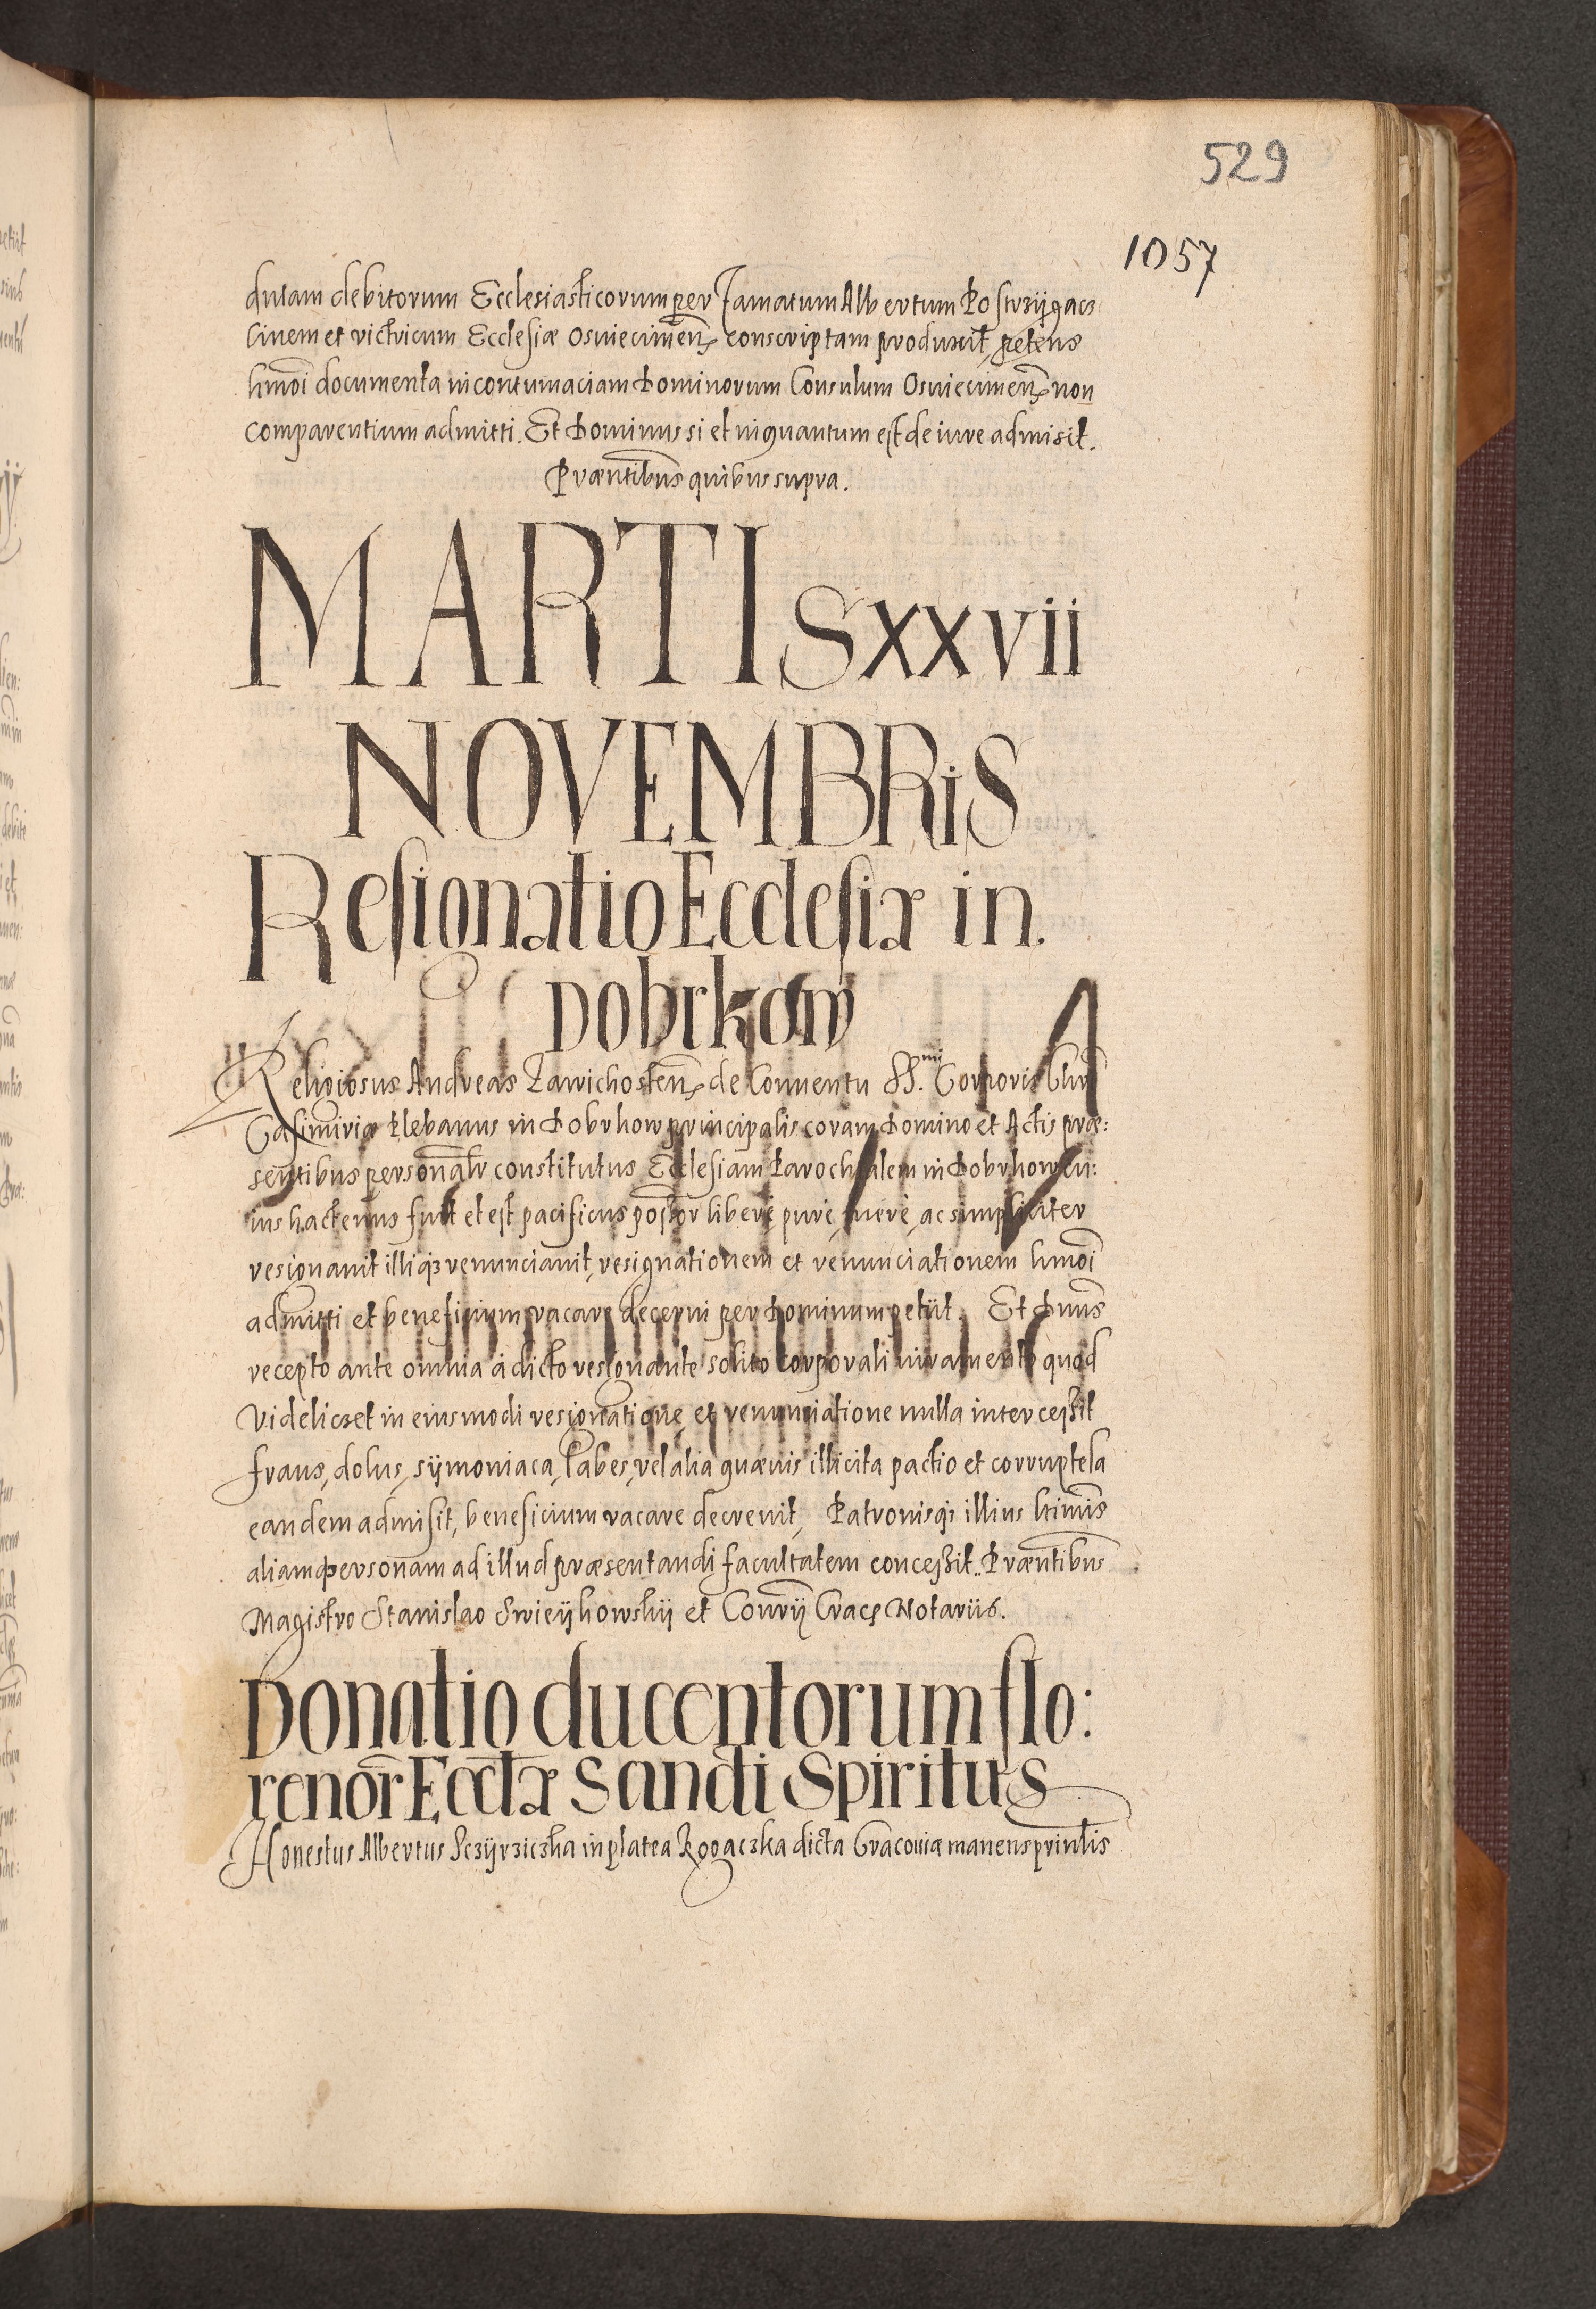 529
1057
dulam debitorum Ecclesiasticorum per Famatum Albertum Postrzijgacs
Civem et victricum Ecclesiæ Osviecimen̄ conscriptam produxit, petens
hmōi documenta in contumaciam Dominorum Consulum Osviecimen̄ non
comparentium admitti. Et Dominus si et inquantum est de iure admisit.
Præntibus quibus supra.
MARTIS xxvii
NOVEMBRiS
Resignatio Ecclesiæ in
Dobrkow
Religiosus Andreas Zawichosten̄ de Conventu SS.mi Corporis Chri
Casimiriæ Plebanus in Dobrkow principalis coram Domino et Actis præ:
sentibus personalr constitutus Ecclesiam Parochialem in Dobrkow cu:
ius hactenus fuit et est pacificus possor libere, pure, mere, ac simpliciter
resignavit illiq3 renunciavit, resignationem et renunciationem hmōi
admitti et beneficium vacare decerni per Dominum petiit. Et Dnus
recepto ante omnia à dicto resignante solito corporali iuramento quod
videliczet in eiusmodi resignatione et renunciatione nulla intercessit
fraus, dolus, sÿmoniaca, labes, vel alia quævis illicita pactio et corruptela
eandem admisit, beneficium vacare decrevit, Patronisq3 illius ltimis
aliam personam ad illud præsentandi facultatem concessit. Præntibus
Magistro Stanislao Swieijkowskij et Conrÿ Crac. Notariis.
Donatio ducentorum flo:
renor̄ Eccłæ Sancti Spiritus
Honestus Albertus Sczÿrziczka in platea Rogaczka dicta Cracoviæ manens prinlis